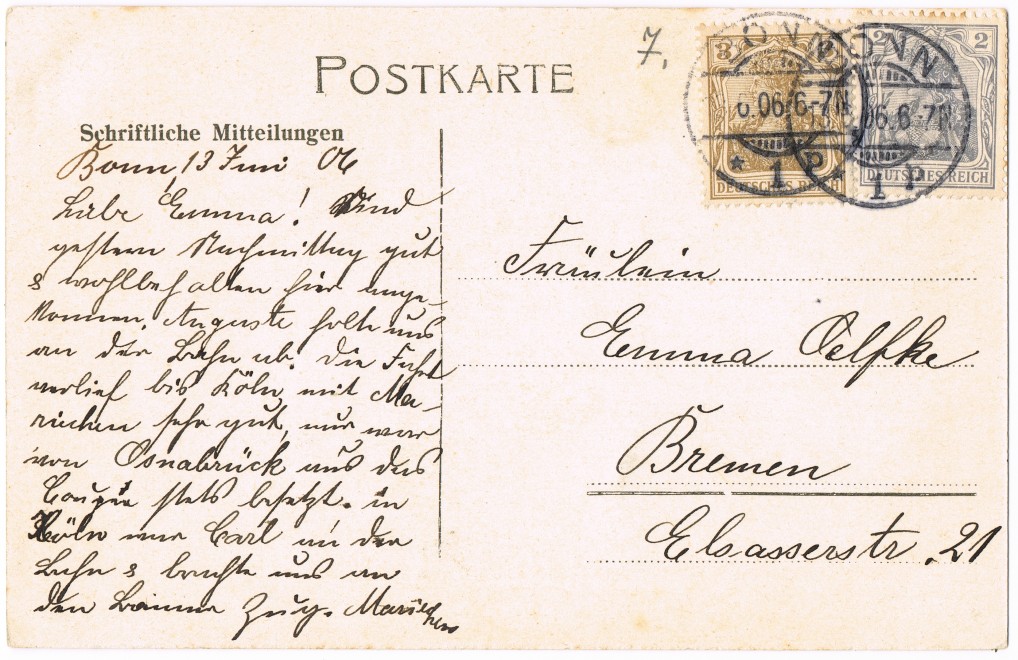 POSTKARTE
7,
Schriftliche Mitteilungen
Bonn, 13 Juni 06
Liebe Emma! Sind
gestern Nachmittag gut
& wohlbehalten hier ange-
kommen. Auguste holte uns
an der Bahn ab. Die Fahrt
verlief bis Köln mit Ma-
riechen sehr gut, nur war
von Osnabrück aus das
Coupee stets besetzt. in
Köln war Carl an der
Bahn & brachte uns an
den Bonner Zug. Mariechen
3
DEUTSCHES REICH
2
2
DEUTSCHES REICH
BONN
6.06.6-7N
* 1 p *
BONN
06.6-7N
1 p
Fräulein
Emma Oelfke
Bremen
Elsasserstr. 21